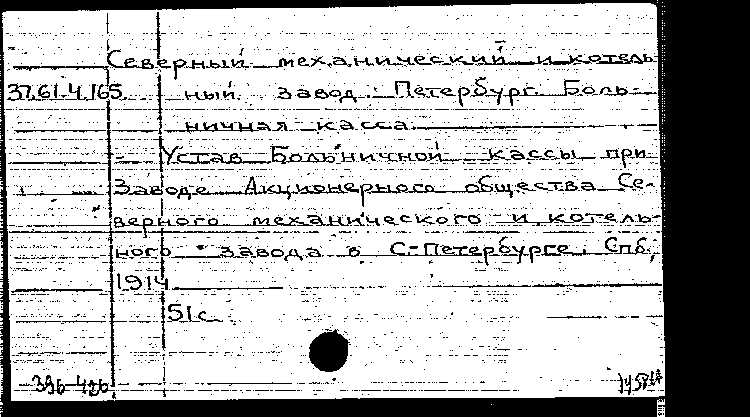 Северный механический и котель-
37.61.4.165 ный завод. Петербург. Боль-
ничная касса.
- Устав Больничной кассы при
Заводе Акционерного общества Се-
верного механического и котель-
ного завода в С-Петербурге. Спб,
1914
51с.
396-426